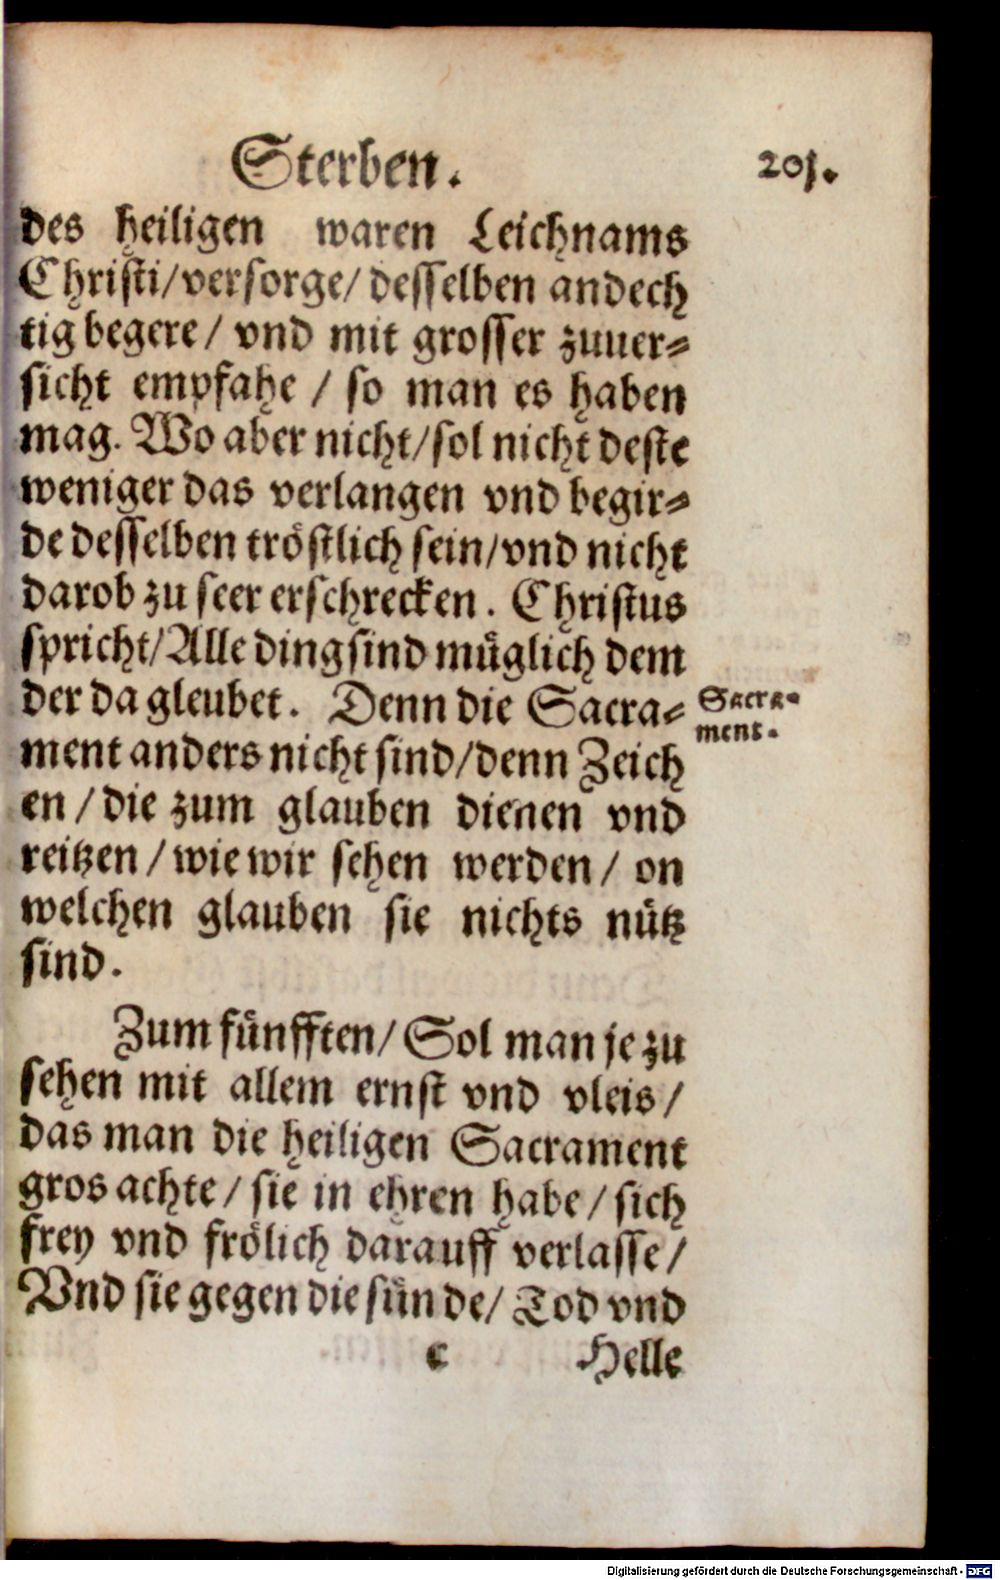 Sterben. 201.
des heiligen waren Leichnams
Christi/versorge/ desselben andech
tig begere/ vnd mit grosser zuuer-
sicht empfahe / so man es haben
mag. Wo aber nicht/sol nicht deste
weniger das verlangen vnd begir-
de desselben tröstlich sein/vnd nicht
darob zu seer erschrecken. Christus
spricht/Alle ding sind müglich dem
der da gleubet. Denn die Sacra-
Sacra-
ment.
ment anders nicht sind/denn Zeich
en / die zum glauben dienen vnd
reitzen / wie wir sehen werden / on
welchen glauben sie nichts nütz
sind.
Zum fünfften/ Sol man je zu
sehen mit allem ernst vnd vleis /
das man die heiligen Sacrament
gros achte / sie in ehren habe / sich
frey vnd frölich darauff verlasse /
Vnd sie gegen die sünde/ Tod vnd
c Helle
Digitalisierung gefördert durch die Deutsche Forschungsgemeinschaft - DFG